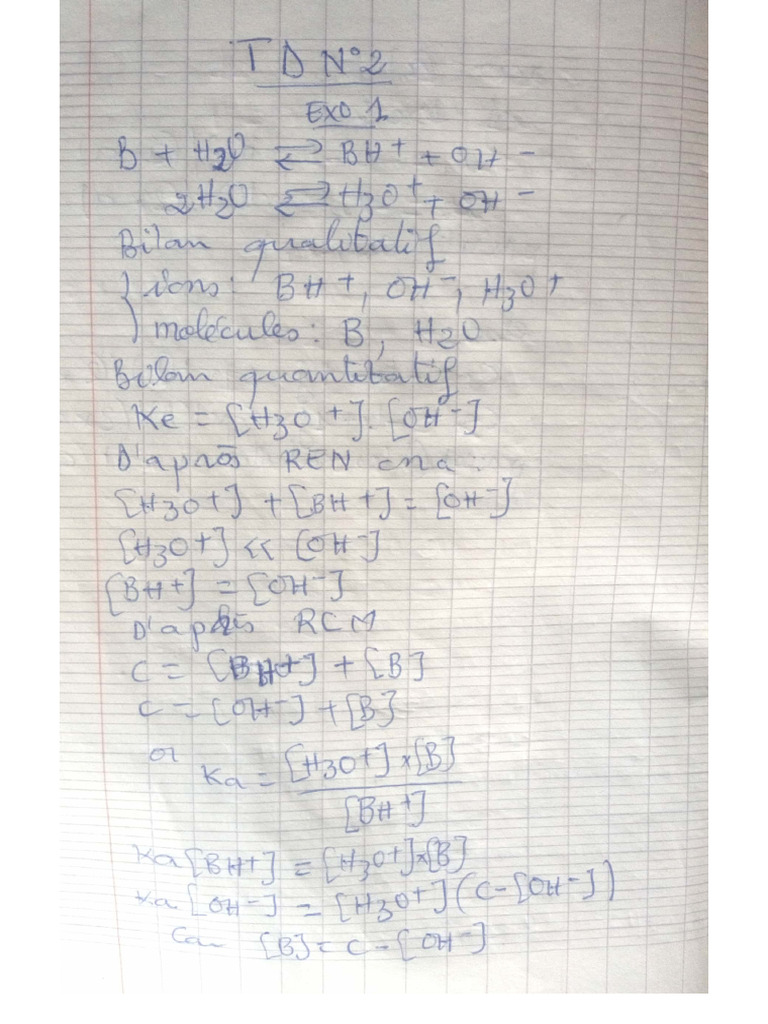 TD N°2
EXO 1
B + H2O ⇌ BH+ + OH-
2H2O ⇌ H3O+ + OH-
Bilan qualitatif
{ ions : BH+, OH-, H3O+
molécules : B, H2O
Bilan quantitatif
Ke = [H3O+].[OH-]
D'après REN on a :
[H3O+] + [BH+] = [OH-]
[H3O+] << [OH-]
[BH+] = [OH-]
D'après RCM
C = [BH+] + [B]
C = [OH-] + [B]
or Ka = [H3O+] x [B] / [BH+]
Ka [BH+] = [H3O+] x [B]
Ka [OH-] = [H3O+] (C - [OH-])
Car [B] = C - [OH-]